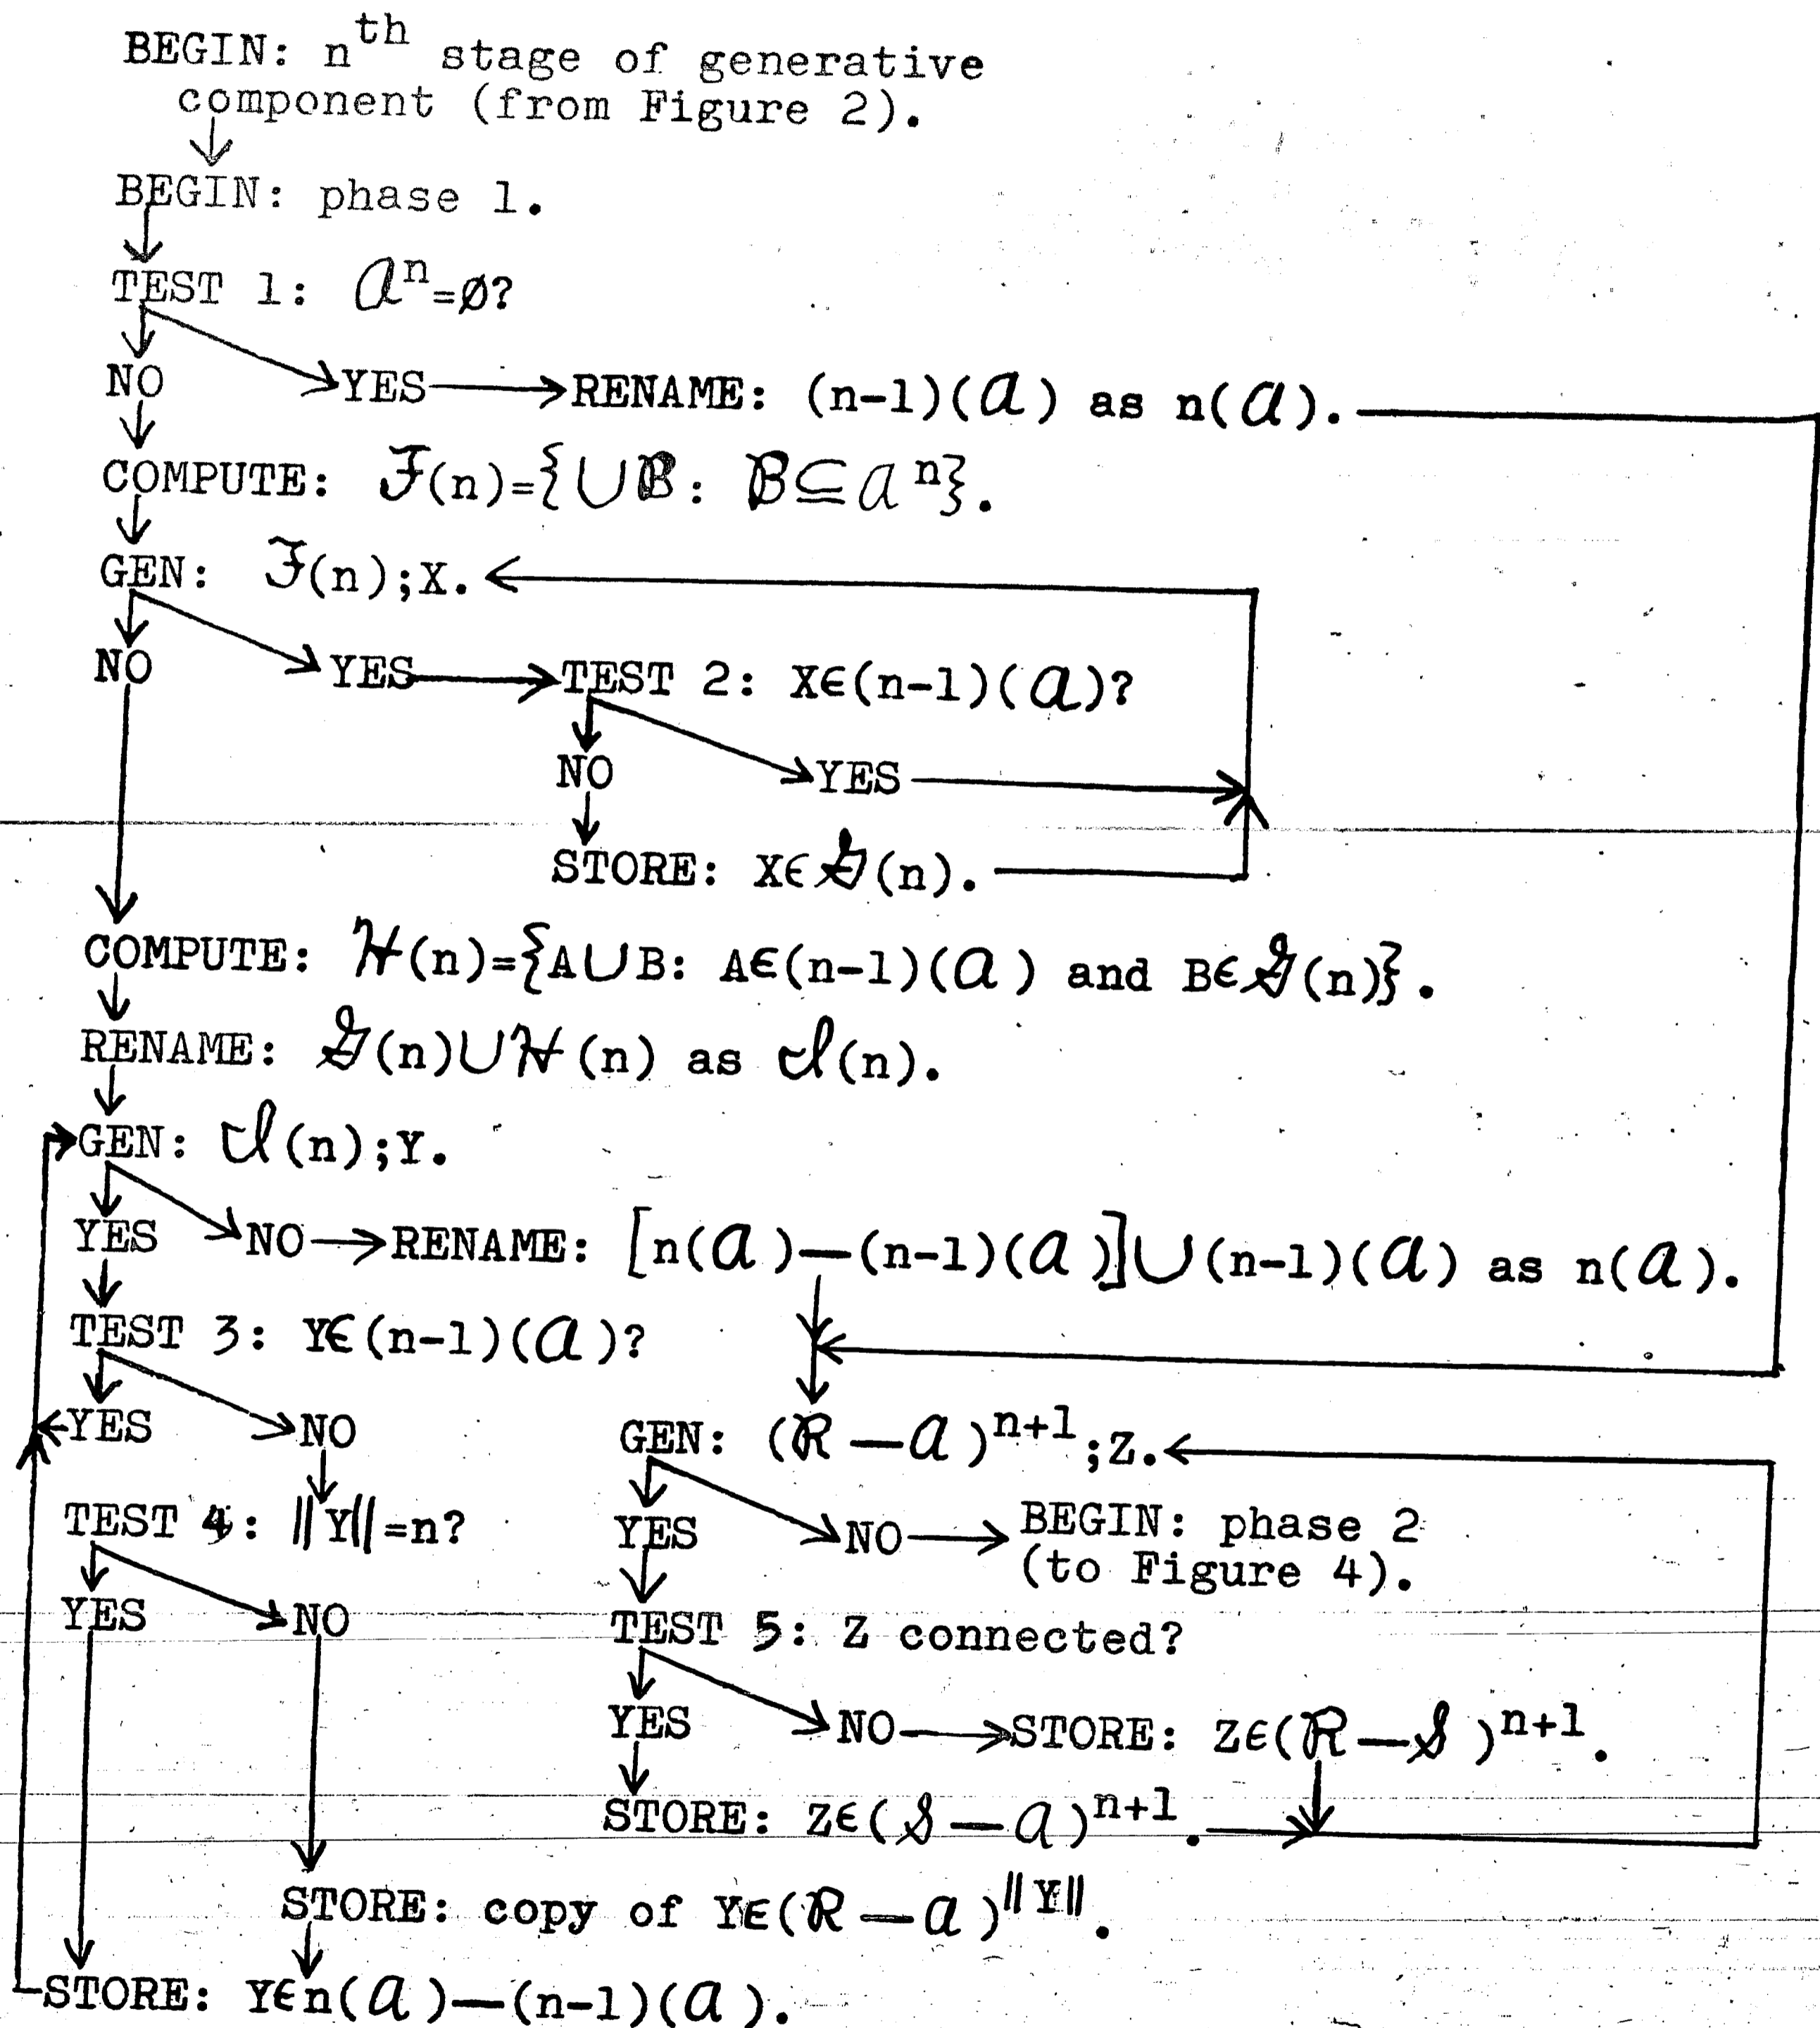 BEGIN: nth stage of generative
component (from Figure 2).
BEGIN: phase 1.
TEST 1: 𝒜ⁿ=∅?
NO
YES
RENAME: (n-1)(𝒜) as n(𝒜).
COMPUTE: ℱ(n)={∪ℬ: ℬ⊆𝒜ⁿ}.
GEN: ℱ(n);X.
NO
YES
TEST 2: X∈(n-1)(𝒜)?
NO
YES
STORE: X∈𝒢(n).
COMPUTE: ℋ(n)={A∪B: A∈(n-1)(𝒜) and B∈𝒢(n)}.
RENAME: 𝒢(n)∪ℋ(n) as ℐ(n).
GEN: ℐ(n);Y.
YES
NO
RENAME: [n(𝒜)—(n-1)(𝒜)]∪(n-1)(𝒜) as n(𝒜).
TEST 3: Y∈(n-1)(𝒜)?
YES
NO
GEN: (ℛ—𝒜)ⁿ⁺¹;Z.
TEST 4: ‖Y‖=n?
YES
NO
BEGIN: phase 2
(to Figure 4).
YES
NO
TEST 5: Z connected?
YES
NO
STORE: Z∈(ℛ—𝒮)ⁿ⁺¹.
STORE: Z∈(𝒮—𝒜)ⁿ⁺¹.
STORE: copy of Y∈(ℛ—𝒜)‖Y‖.
STORE: Y∈n(𝒜)—(n-1)(𝒜).